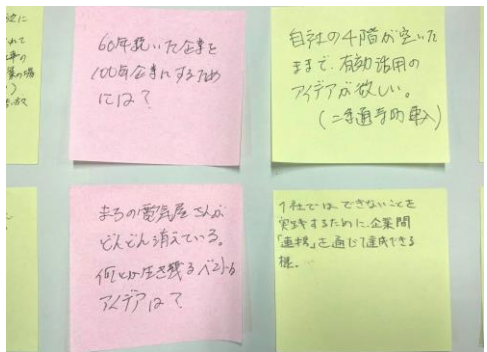 60年続いた企業を
100年企業にするため
には？
自社の4階が空いた
ままで、有効活用の
アイデアが欲しい。
まちの電気屋さんが
どんどん消えている。
何とか生き残るベストな
アイデアは？
1社では、できないことを
実践するために、企業間
「連携」を通じて達成できる
様。